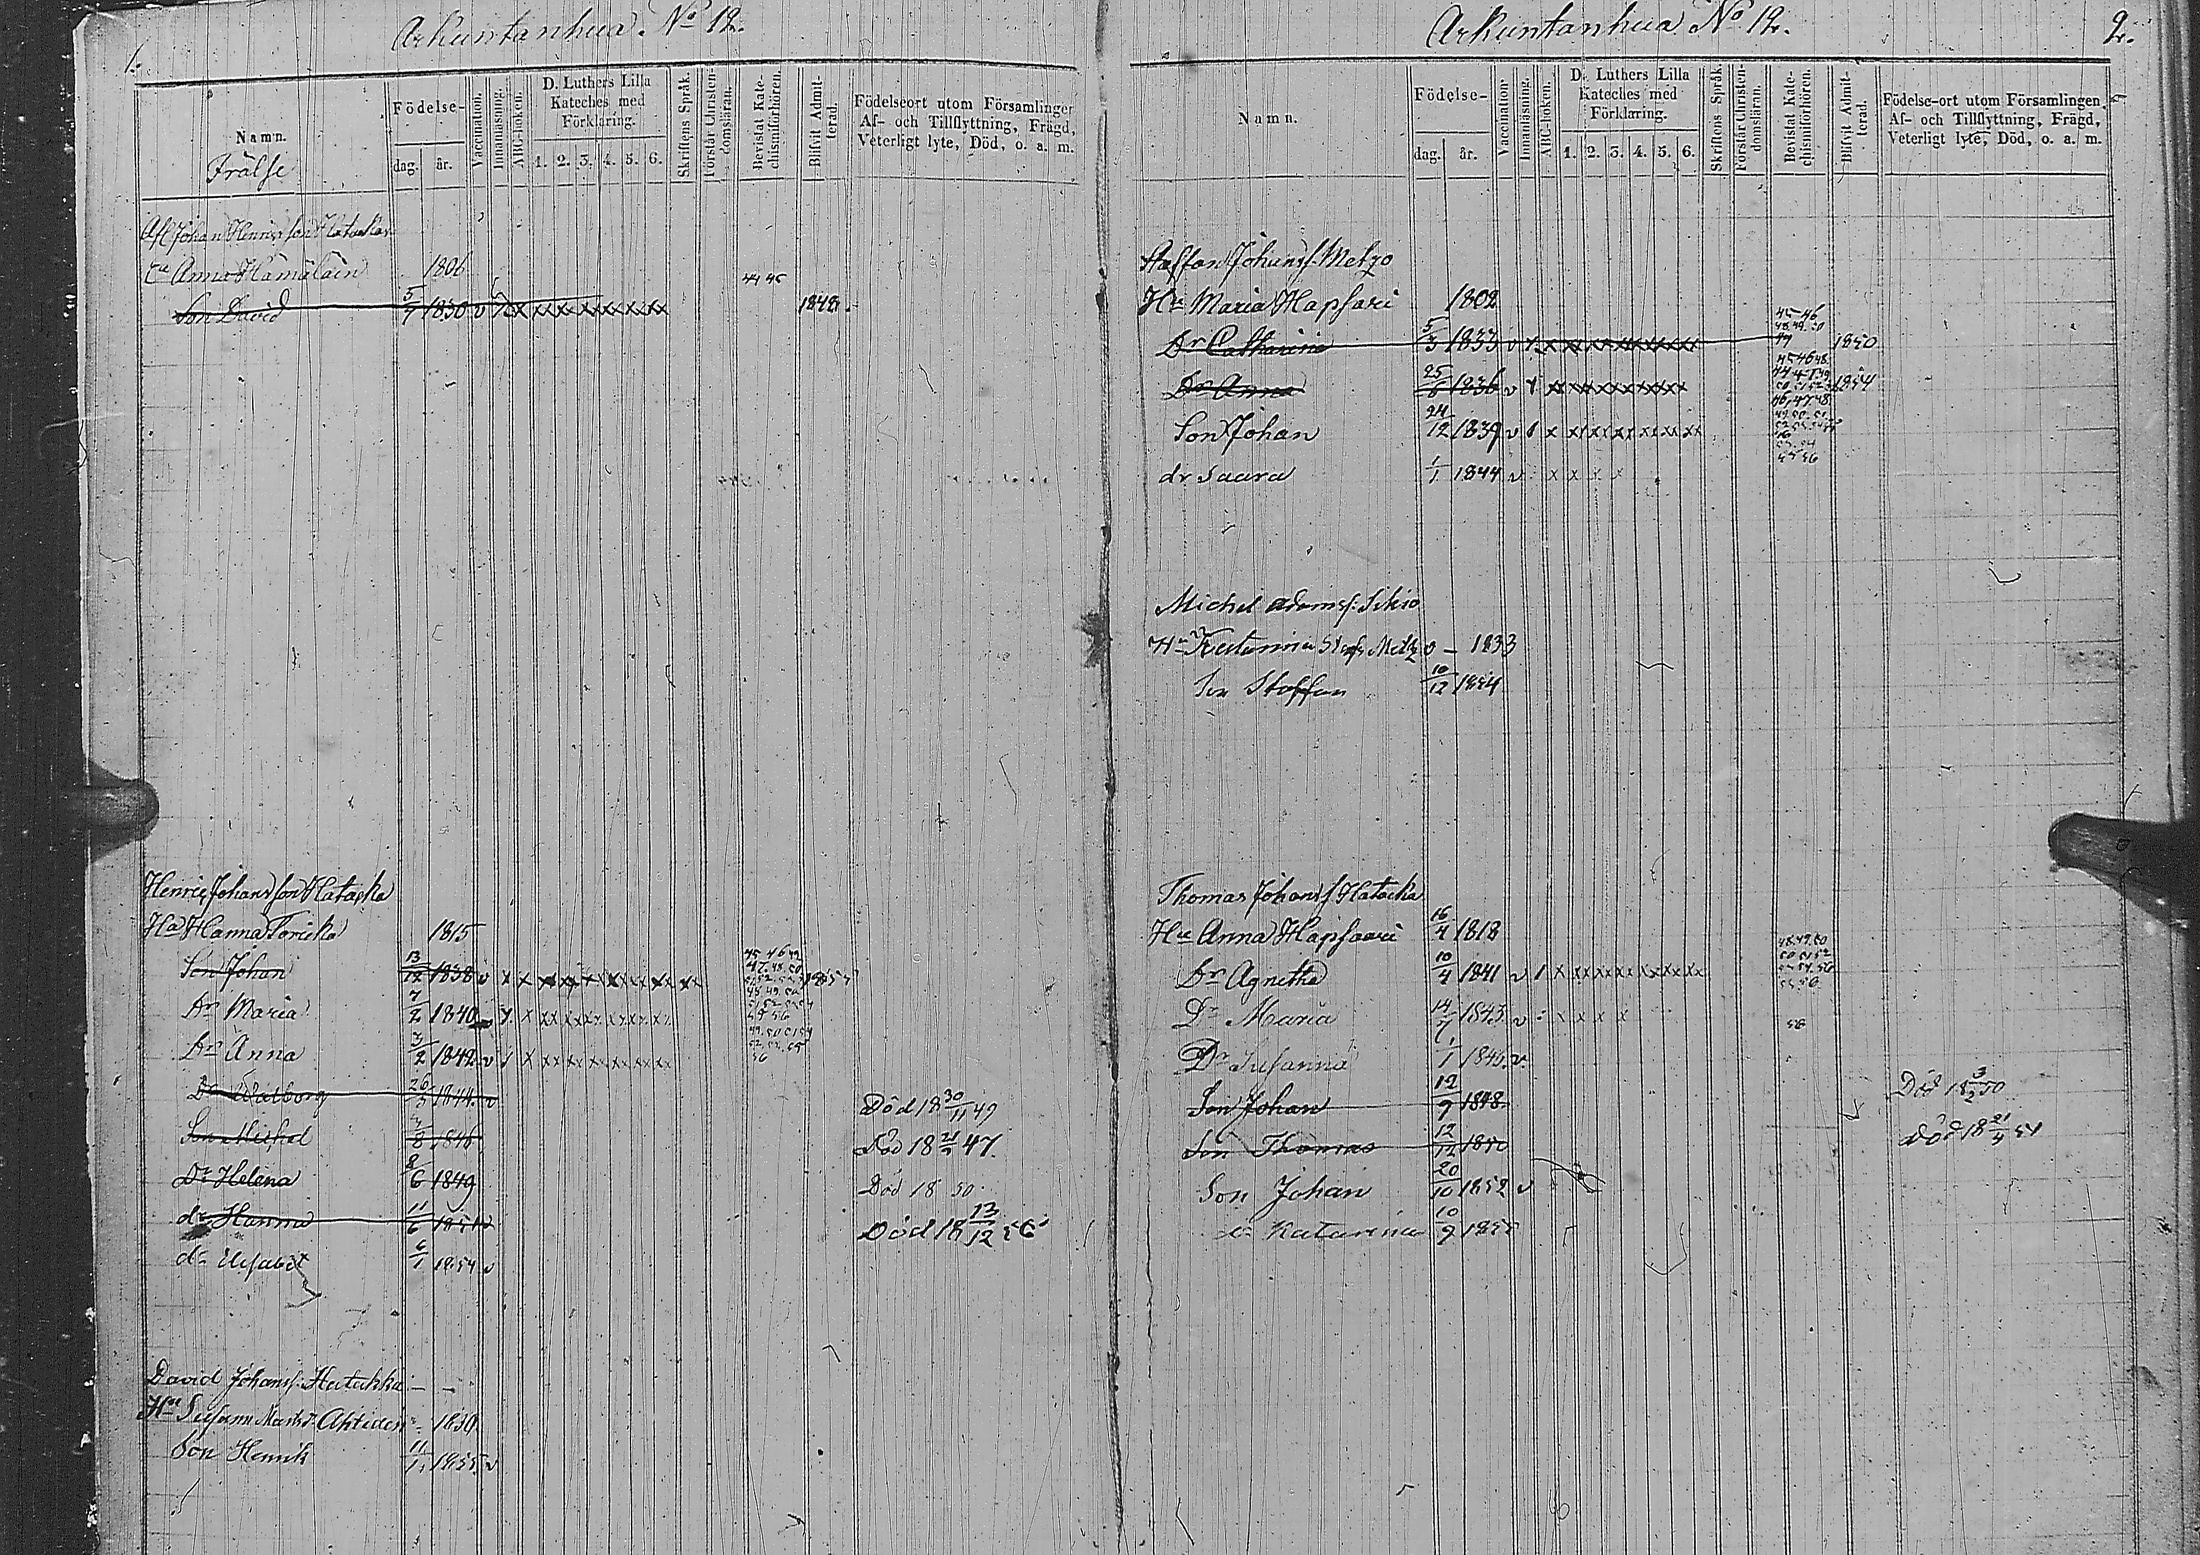 1.
Arkuntanhua. No 12.
Namn.
Frälse
Födelse-
dag. år.
Vaccination.
Innanläsning.
ABC-boken.
D. Luthers Lilla
Kateches med
Förklaring.
1. 2. 3. 4. 5. 6.
Skriftens Språk.
Förstår Christen-
domsläran.
Bevistat Kate-
chismiförhören.
Blifvit Admit-
terad.
Födelseort utom Församlingen
Af- och Tillflyttning, Frägd,
Veterligt lyte, Död, o. a. m.
Afl Johan Henricsson Hatacka
Ea Anna Hämäläin 1806 44 45
Son David 5/7 1830 v 1848.
Henric Johansson Hatacka
Ha Hanna Toricka 1815
Son Johan 13/12 1838 v
Dr Maria 7/2 1840
Dr Anna 3/2 1842 v
Dr Walborg 26/3 1844 v Död 18 30/11 49
Son Michel 1846 Död 18 47.
Dr Helena 8/6 1849 Död 18 50
dr Hanna 11/6 1851 v Död 18 13/12 56
dr Elisabet 6/1 1854 v
David Johanss. Hatakka - -
Hu Susanna Ahtiden - 1830
Son Henrik 11/11 1855 v
Arkuntanhua No 12.
2.
Namn.
Födelse-
dag. år.
Vaccination.
Innanläsning.
ABC-boken.
D. Luthers Lilla
Kateches med
Förklaring.
1. 2. 3. 4. 5. 6.
Skriftens Språk.
Förstår Christen-
domsläran.
Bevistat Kate-
chismiförhören.
Blifvit Admit-
terad.
Födelse-ort utom Församlingen,
Af- och Tillflyttning, Frägd,
Veterligt lyte, Död, o. a. m.
Staffan Johanss. Metzo
Hu Maria Hapsari 1802
Dr Catharina 5/3 1833 v 1850
Dr Anna 25/6 1836 v 1854
Son Johan 24/12 1839 v
dr Saara 1/1 1844 v
Michel Adamss. Sikio
Hu Katarina Metzo - 1833
Son Staffan 10/12 1854
Thomas Johanss. Hatacka
Hu Anna Hapsaari 16/4 1818
Dr Agnetha 10/4 1841 v
Dr Maria 14/7 1843 v 56
Dr Susanna 1/1 1846 v
Son Johan 12/9 1848 Död 18 3/2 50
Son Thomas 12/12 1850 Död 18 21/4 51
Son Johan 20/10 1852 v
dr Katarina 10/9 1855